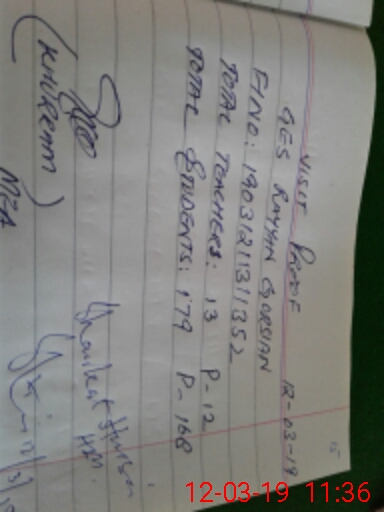 VISIT PROOF 12-03-19
GES RAYYAN GORSIAN
FINO: 19031211311352
TOTAL TEACHERS: 13 P-12
TOTAL STUDENTS: 179 P-168
(KHURRAM)
Shaukat Hussain
HM
15
12-03-19 11:36